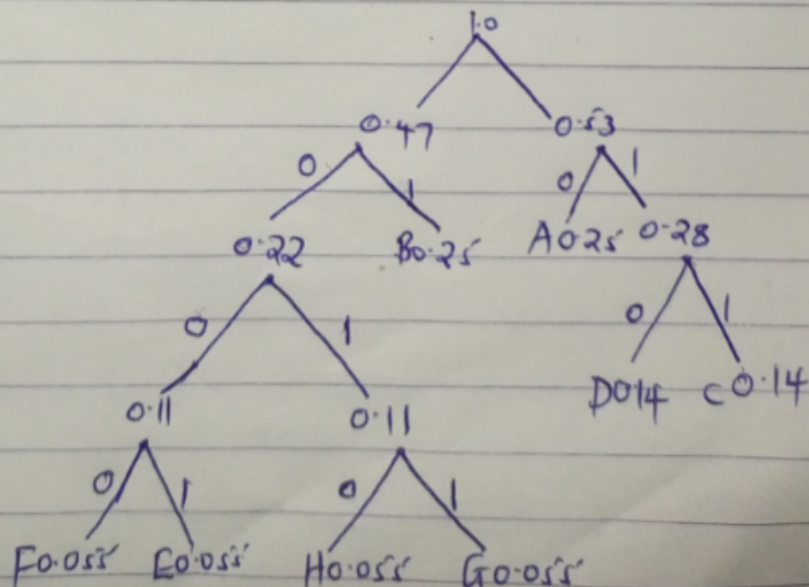 1.0
0.47 0.53
0 1 0 1
0.22 B0.25 A0.25 0.28
0 1 0 1
0.11 0.11 D0.14 C0.14
0 1 0 1
F0.055 E0.055 H0.055 G0.055